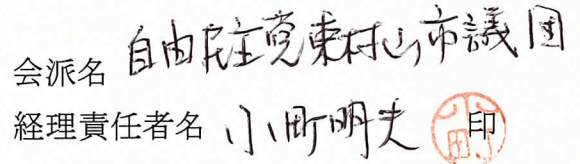 会派名 自由民主党東村山市議団
経理責任者名 小町明夫 印